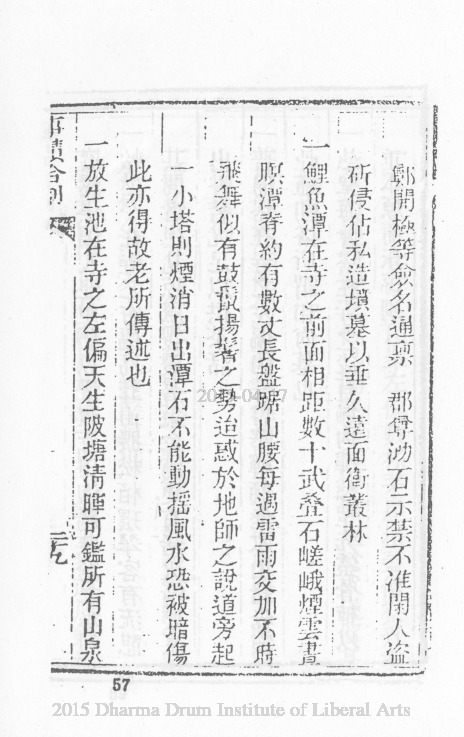 鄭開極等僉名通稟　郡尊泐石示禁不准閑人盜
斫侵佔私造墳墓以垂久遠面衛叢林
一鯉魚潭在寺之前面相距數十武叠石嵯峨煙雲晝
暝潭脊約有數丈長盤踞山腰每遇雷雨交加不時
飛舞似有鼓鬣揚鬐之勢迨惑於地師之說道旁起
一小塔則煙消日出潭石不能動搖風水恐被暗傷
此亦得故老所傳述也
一放生池在寺之左偏天生陂塘清暉可鑑所有山泉
事蹟合刻
57
2015 Dharma Drum Institute of Liberal Arts